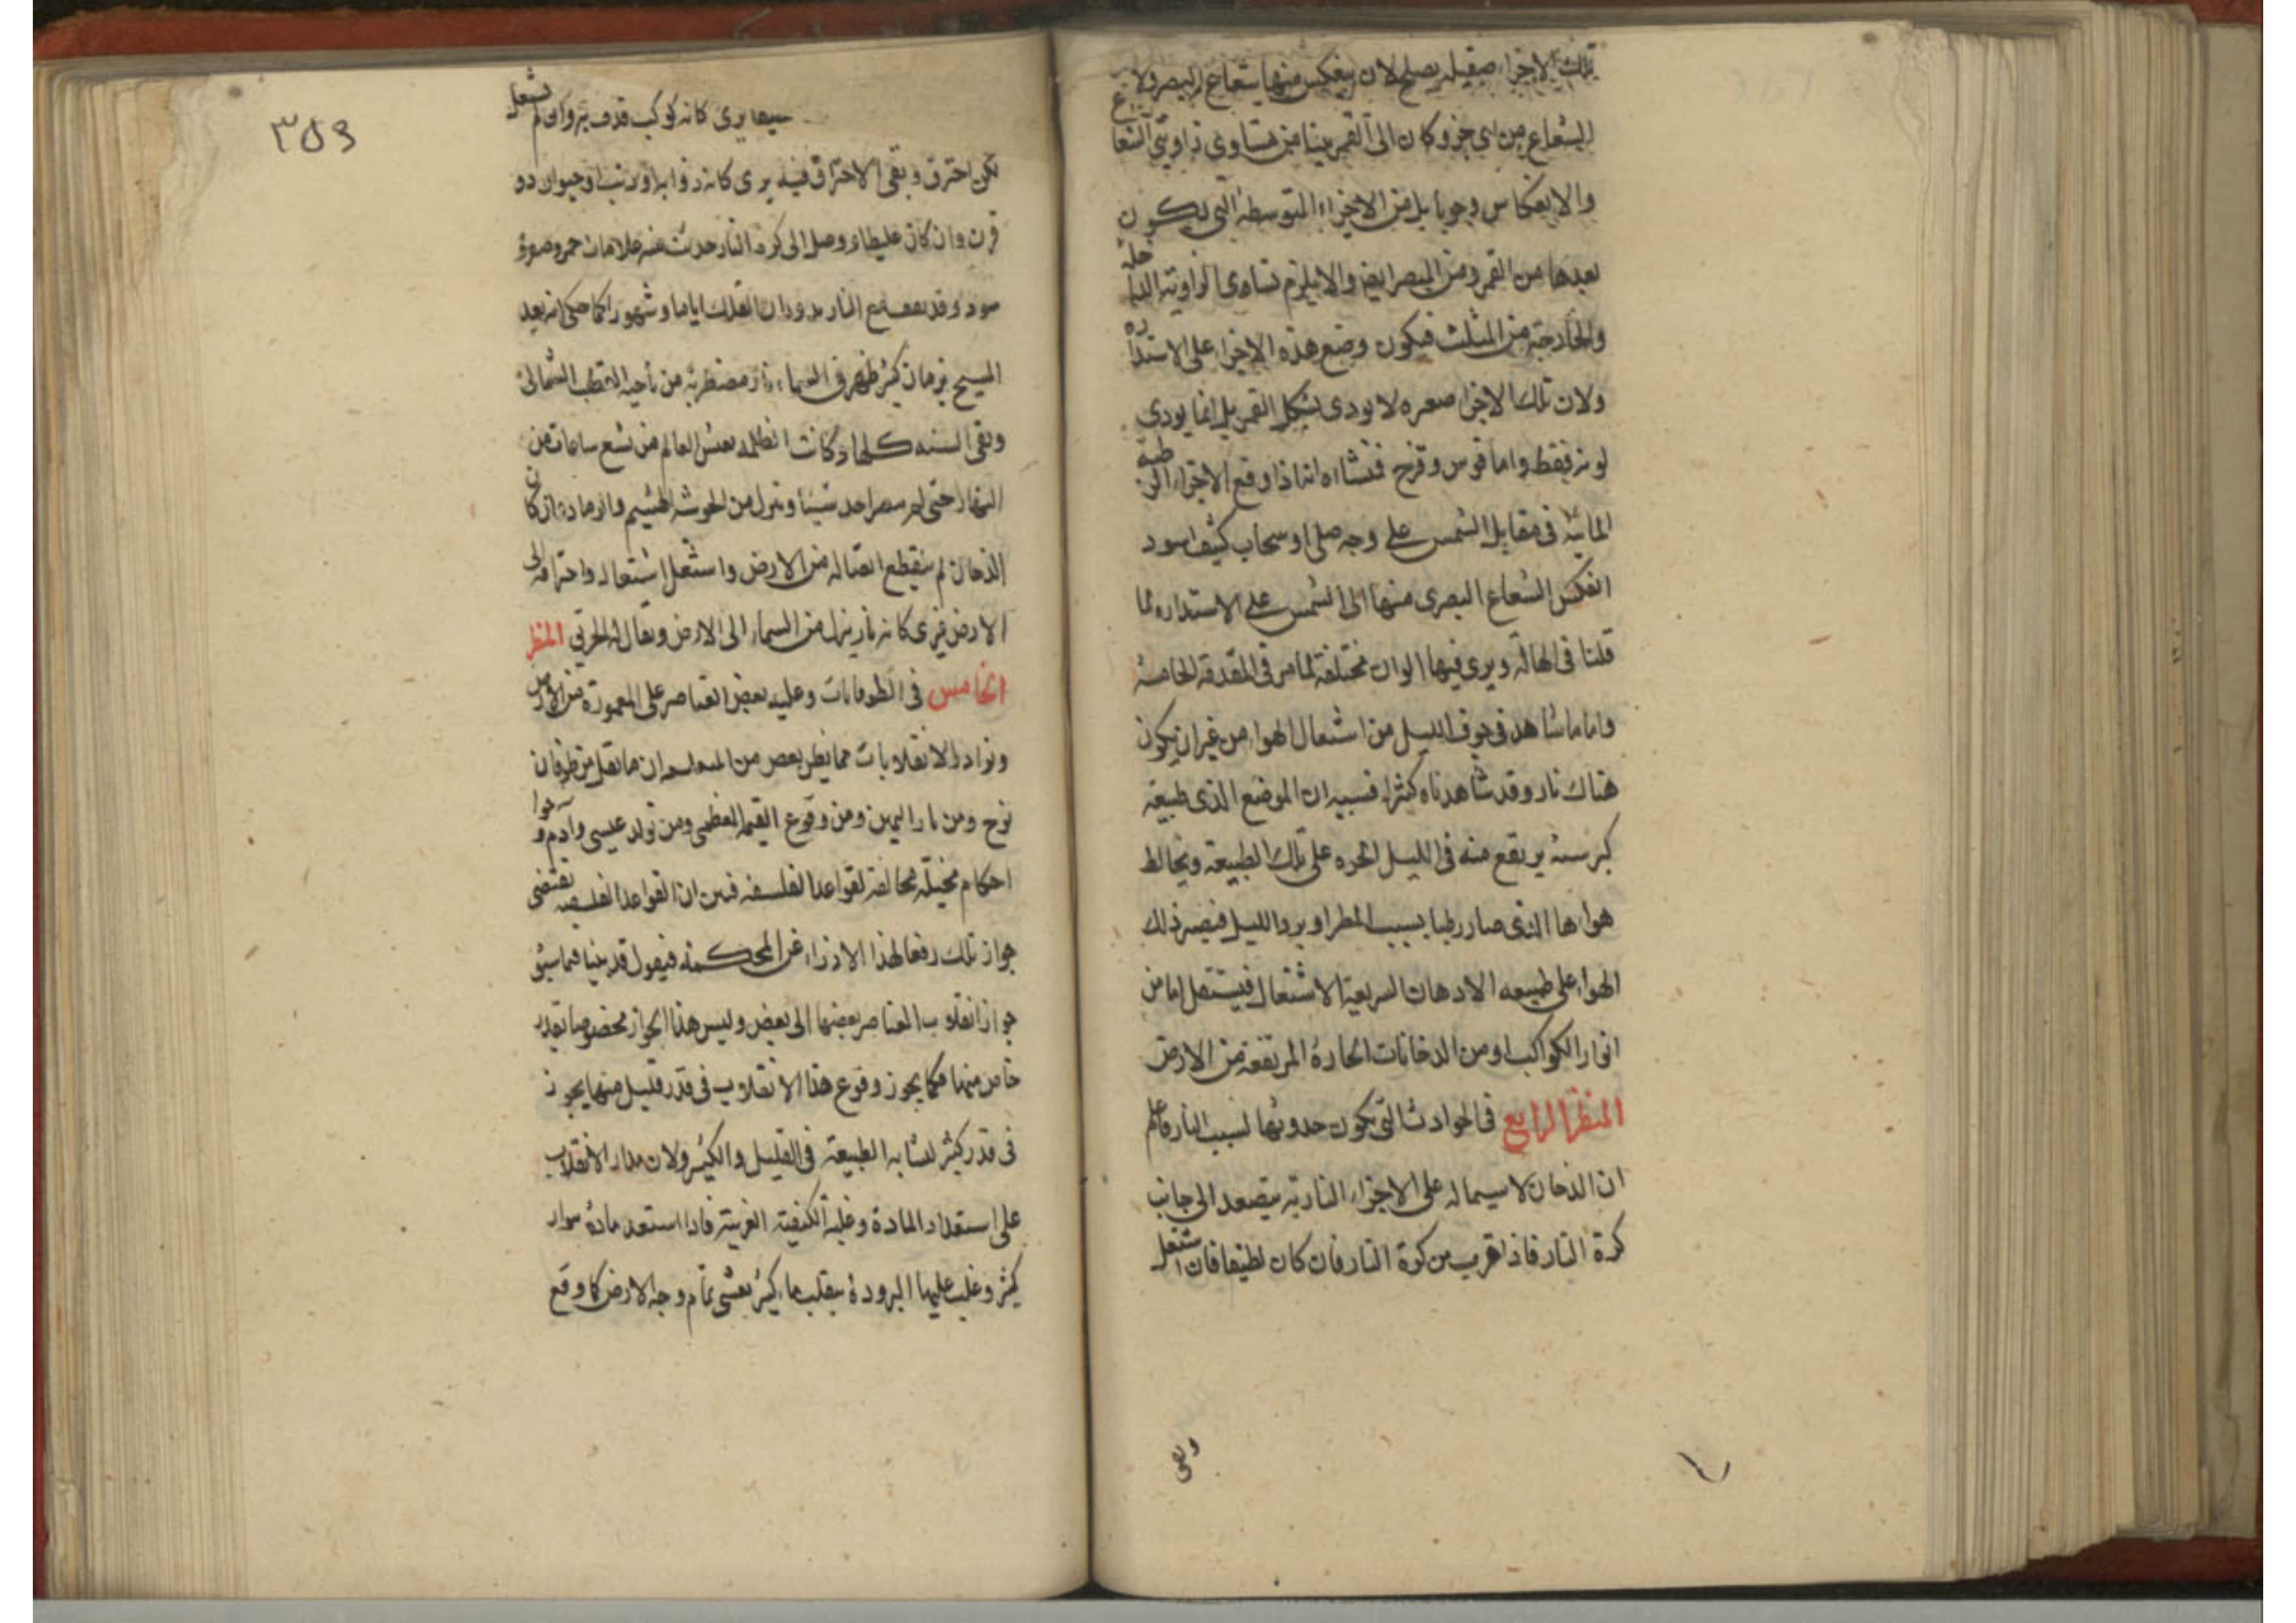 تلك الاجزاء صقيله يصلح لان ينعكس منها شعاع البصر ولا
الشعاع من اى جزو كان الى القمر بيننا من متساوى زاويتى الشعاع
والانعكاس وجوبا بل من الاجزاء المتوسطة التى يكون
بعدها من القمر ومن البصر ايض والا يلزم تساوى الزاويته الداخله
والخارجة من المثلث فيكون وضع هذه الاجزاء على الاستداره
ولان تلك الاجزا صغيره لا يودى شكل القمر بل انما يودى
لونه فقط واما قوس وقزح فمنشاءه انه اذا وقع الاجزاء الرطبة
المائية فى مقابل الشمس على وجه صلى او سحاب كثيف اسود
انعكس الشعاع البصرى منها الى الشمس على الاستداره لما
قلنا فى الهالة ويرى فيها الوان مختلفة لما مر فى المقدمة الخامسة
واما ما شاهد فى جوف الليل من اشتعال الهوا من غير ان يكون
هناك نار وقد شاهدناه كثيرا فسببه ان الموضع الذى طبيعة
كبرسته يرتفع منه فى الليل ابخره على تلك الطبيعة ويخالط
هواءها الذى صار رطبا بسبب المطر او برد الليل فيصير ذلك
الهواء على طبيعه الادهان السريعة الاشتعال فيشتعل اما من
انوار الكواكب او من الدخانات الحارة المرتفعة من الارض
المنظر الرابع فى الحوادث التى يكون حدوثها لسبب النار فاعلم
ان الدخان لاسيماله على الاجزاء النارية يتصعد الى جانب
كرة النار فاذا قرب من كرة النار فان كان لطيفا فان اشتعل
وبقى
٣٥٩
سيما يرى كانه كوكب قذف به وان لم يشعل
لكن احترق وبقى الاحتراق فيه يرى كانه ذوابه او ذنب او حيوان ذو
قرن وان كان غليظا ووصل الى كرة النار حدث منه علامات حمر وصور
سود وقد يقف مع النار بدوران الفلك اياما وشهورا كما حكى انه بعد
المسيح بزمان كثير ظهر فى السماء نار مضطربة من ناحية القطب الشمالى
وبقى السنه كلها وكانت الظلمه يغشى العالم من تسع ساعات من
النهار حتى لم يبصر احد شيئا وينزل من الجو شبه الهشيم والرماد وان كان
الدخان لم ينقطع اتصاله من الارض واشتعل اشتعاله واحتراقه الى
الارض فيرى كانه نار ينزل من السماء الى الارض ويقال له الحريق المنظر
الخامس فى الطوفانات وغلبه بعض العناصر على المعمورة من الارض
ونوادر الانقلابات مما يظن بعض من ان ما نقل من طوفان
نوح ومن نار اليمن ومن وقوع القيمة العظمى ومن تولد عيسى وآدم وحوا
احكام مخيلة مخالفة لقواعد الفلسفه فبين ان القواعد الفلسفيه تقتضى
جواز تلك رفعا لهذا الازراء عن الحكمة فيقول قد بينا فيما سبق
جواز انقلاب العناصر بعضها الى بعض وليس هذا الجواز مخصوصا بقدر
خاص منها فكما يجوز وقوع هذا الانقلاب فى قدر قليل منها يجوز
فى قدر كثير لتشابه الطبيعة فى القليل والكثير ولان مدار الانقلاب
على استعداد المادة وغلبة الكيفية الغريبة فاذا استعد مادة هواء
كثير وغلب عليها البرودة ينقلب ماء كثير يغشى تمام وجه الارض كما وقع